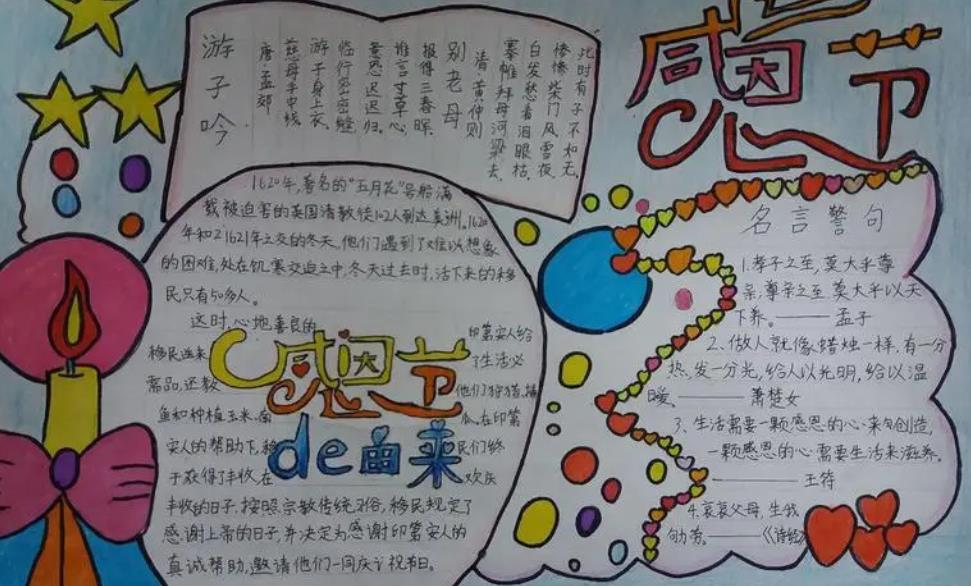 感恩节
游子吟
唐·孟郊
慈母手中线
游子身上衣。
临行密密缝
意恐迟迟归。
谁言寸草心
报得三春晖
别老母
清·黄仲则
搴帷拜母河梁去,
白发愁看泪眼枯。
惨惨柴门风雪夜
此时有子不如无.
1620年,著名的“五月花”号船满
载被迫害的英国清教徒102人到达美洲。1620
年和21621年之交的冬天,他们遇到了难以想象
的困难,处在饥寒交迫之中,冬天过去时,活下来的移
民只有50多人。
这时,心地善良的印第安人给
移民送来了生活必
需品,还教他们狩猎,捕
鱼和种植玉米、南瓜。在印第
安人的帮助下,移民们终
于获得了丰收,在欢庆
丰收的日子,按照宗教传统习俗,移民规定了
感谢上帝的日子,并决定为感谢印第安人的
真诚帮助,邀请他们一同庆祝节日。
感恩节
de由来
名言警句
1.孝子之至,莫大乎尊
亲;尊亲之至,莫大乎以天
下养。——孟子
2、做人就像蜡烛一样,有一分
热,发一分光,给人以光明,给以温
暖。——萧楚女
3、生活需要一颗感恩的心来创造,
一颗感恩的心需要生活来滋养。
——王符
4.哀哀父母,生我
劬劳。——《诗经》